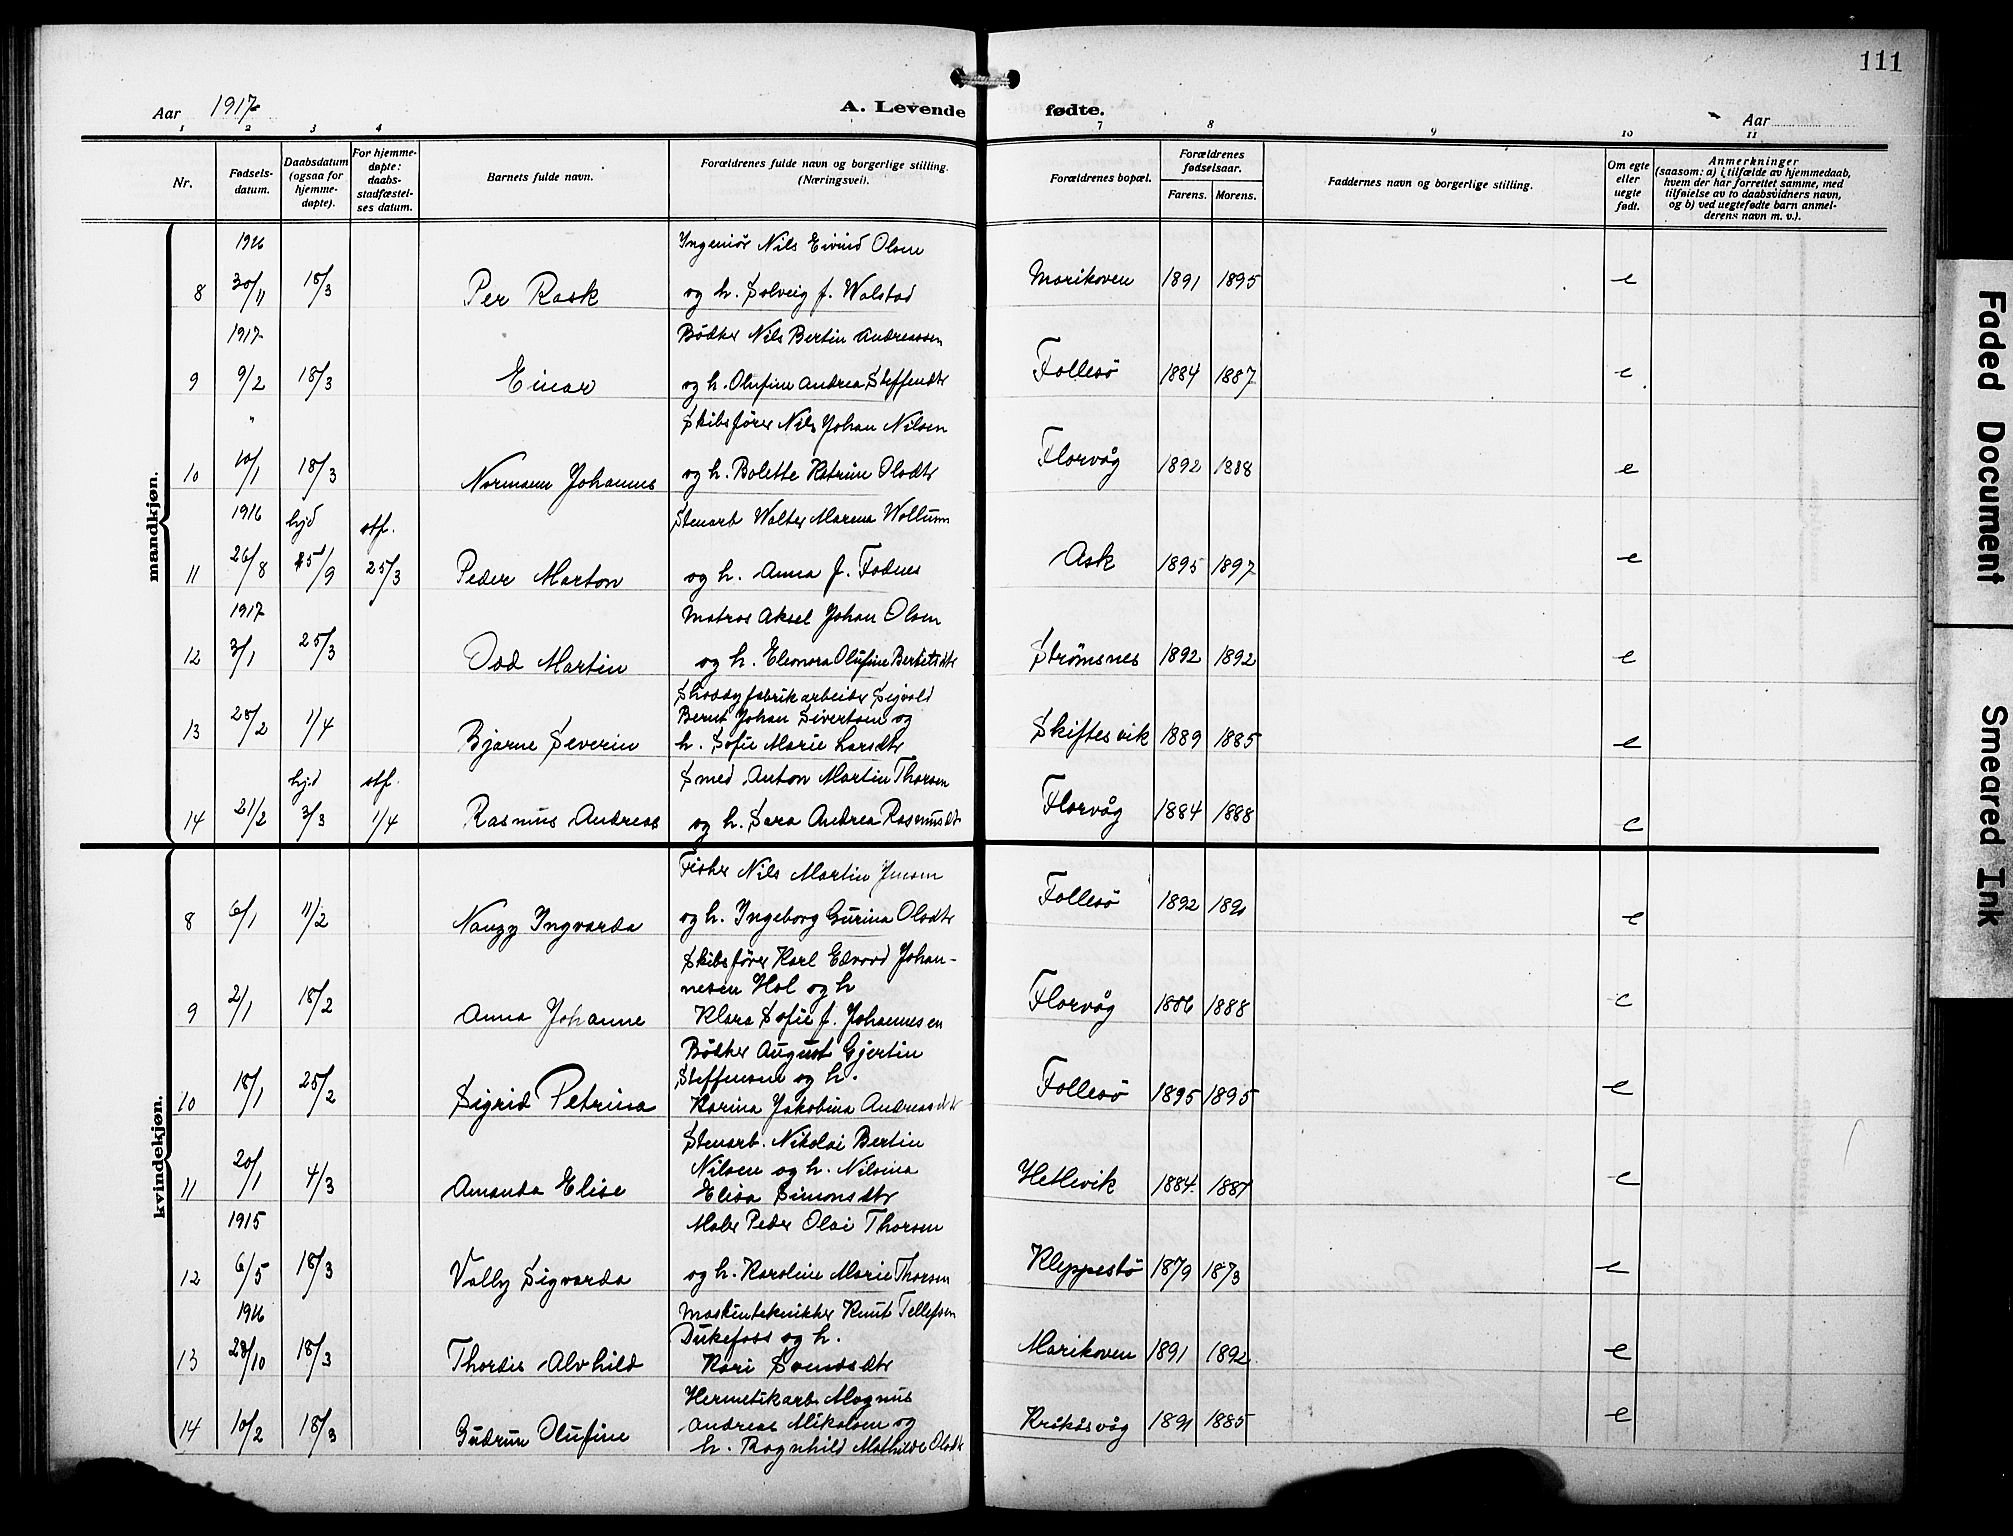 111
Aar 1917
A. Levende fødte.
Aar
1 2 3 4 7 8 9 10 11
Nr.
Fødsels-
datum.
Daabsdatum
(ogsaa for
hjemme-
døpte).
For hjemme-
døpte:
daabs-
stadfæstel-
ses datum.
Barnets fulde navn.
Forældrenes fulde navn og borgerlige stilling.
(Næringsvei).
Forældrenes bopæl.
Forældrenes
fødselsaar.
Farens. Morens.
Faddernes navn og borgerlige stilling.
Om egte
eller
uegte
født.
Anmerkninger
(saasom: a) i tilfælde av hjemmedaab,
hvem der har forrettet samme, med
tilføielse av to daabsvidners navn,
og b) ved uegtefødte barn anmel-
derens navn m. v.).
mandkjøn.
1916 Ingeniør Nils Eivind Olsen
8 30/11 18/3 Per Rask og h. Solveig f. Walstad Marikoven 1891 1895 e
1917 Bödker Nils Bertin Andreassen
9 9/2 18/3 Einar og h. Olufine Andrea Steffensdtr Follesö 1884 1887 e
" Skibsfører Nils Johan Nilsen
10 10/1 18/3 Normann Johannes og h. Bolette Katrine Olsdtr Florvåg 1892 1888 e
1916 hjd stf. Stenarb Walter Wollum
11 26/8 25/3 Peder Marton og h. Anna f. Fadnes Ask 1895 1897 e
1917 Matros Aksel Johan Olsen
12 3/1 25/3 Odd Martin og h. Eleonora Olufine Strömsnes 1892 1892 e
Shoddyfabrikarbeider Sigvald
Bernt Johan Sivertsen og
13 28/2 1/4 Bjarne Severin h. Sofie Marie Larsdtr Skiftesvik 1889 1885 e
hjd stf. Smed Anton Martin Thorsen
14 21/2 3/3 1/4 Rasmus Andreas og h. Sara Andrea Rasmusdtr Florvåg 1884 1888 e
kvindekjøn.
Fisker Nils Martin Jensen
8 6/1 11/2 Nanzy Ingvarda og h. Ingeborg Gurina Olsdtr Follesö 1892 e
Skibsfører Karl Edvard Johan-
nesen Hol og h
9 2/1 18/2 Anna Johanne Klara Sofie f. Johannesen Florvåg 1886 1888 e
Bödker August Gjertin
Steffensen og h.
10 18/1 25/2 Sigrid Petrina Karina Jakobina Andreasdtr Follesö 1895 1895 e
Stenarb. Nikolai Bertin
Nilsen og h. Nilsina
11 20/1 4/3 Amanda Elise Elisa Simonsdtr Hetlevik 1884 1887 e
1915 Maler Peder Olai Thorsen
12 6/5 18/3 Vally Sigvarda og h. Karoline Marie Thorsen Kleppestö 1879 1873 e
1916 Maskintekniker Knut Tellefsen
Dukefoss og h.
13 28/10 18/3 Thordis Alvhild Kari Svendsdtr Marikoven 1891 1892 e
Hermetikarb Magnus
Andreas Mikalsen og
14 10/2 18/3 Gudrun Olufine h. Ragnhild Mathilde Olsdtr Kråkåsvåg 1891 1885 e
Faded Document
Smeared Ink